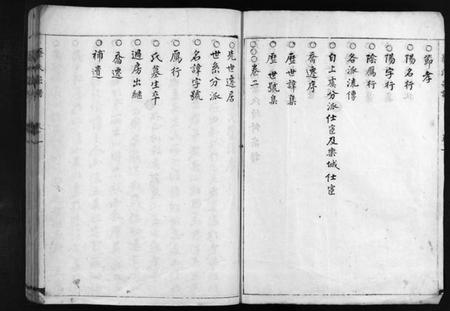 ○節孝
○陽名行
○陽字行
○陰鴈行
○各派流傳
○自上虞分派仕宦及樂城仕宦
○喬遷序
○歷世諱集
○歷世號集
○○○卷二
○先世遷居
○世系分派
○名諱字號
○鴈行
○氏墓生卒
○過房出繼
○喬遷
○補遺